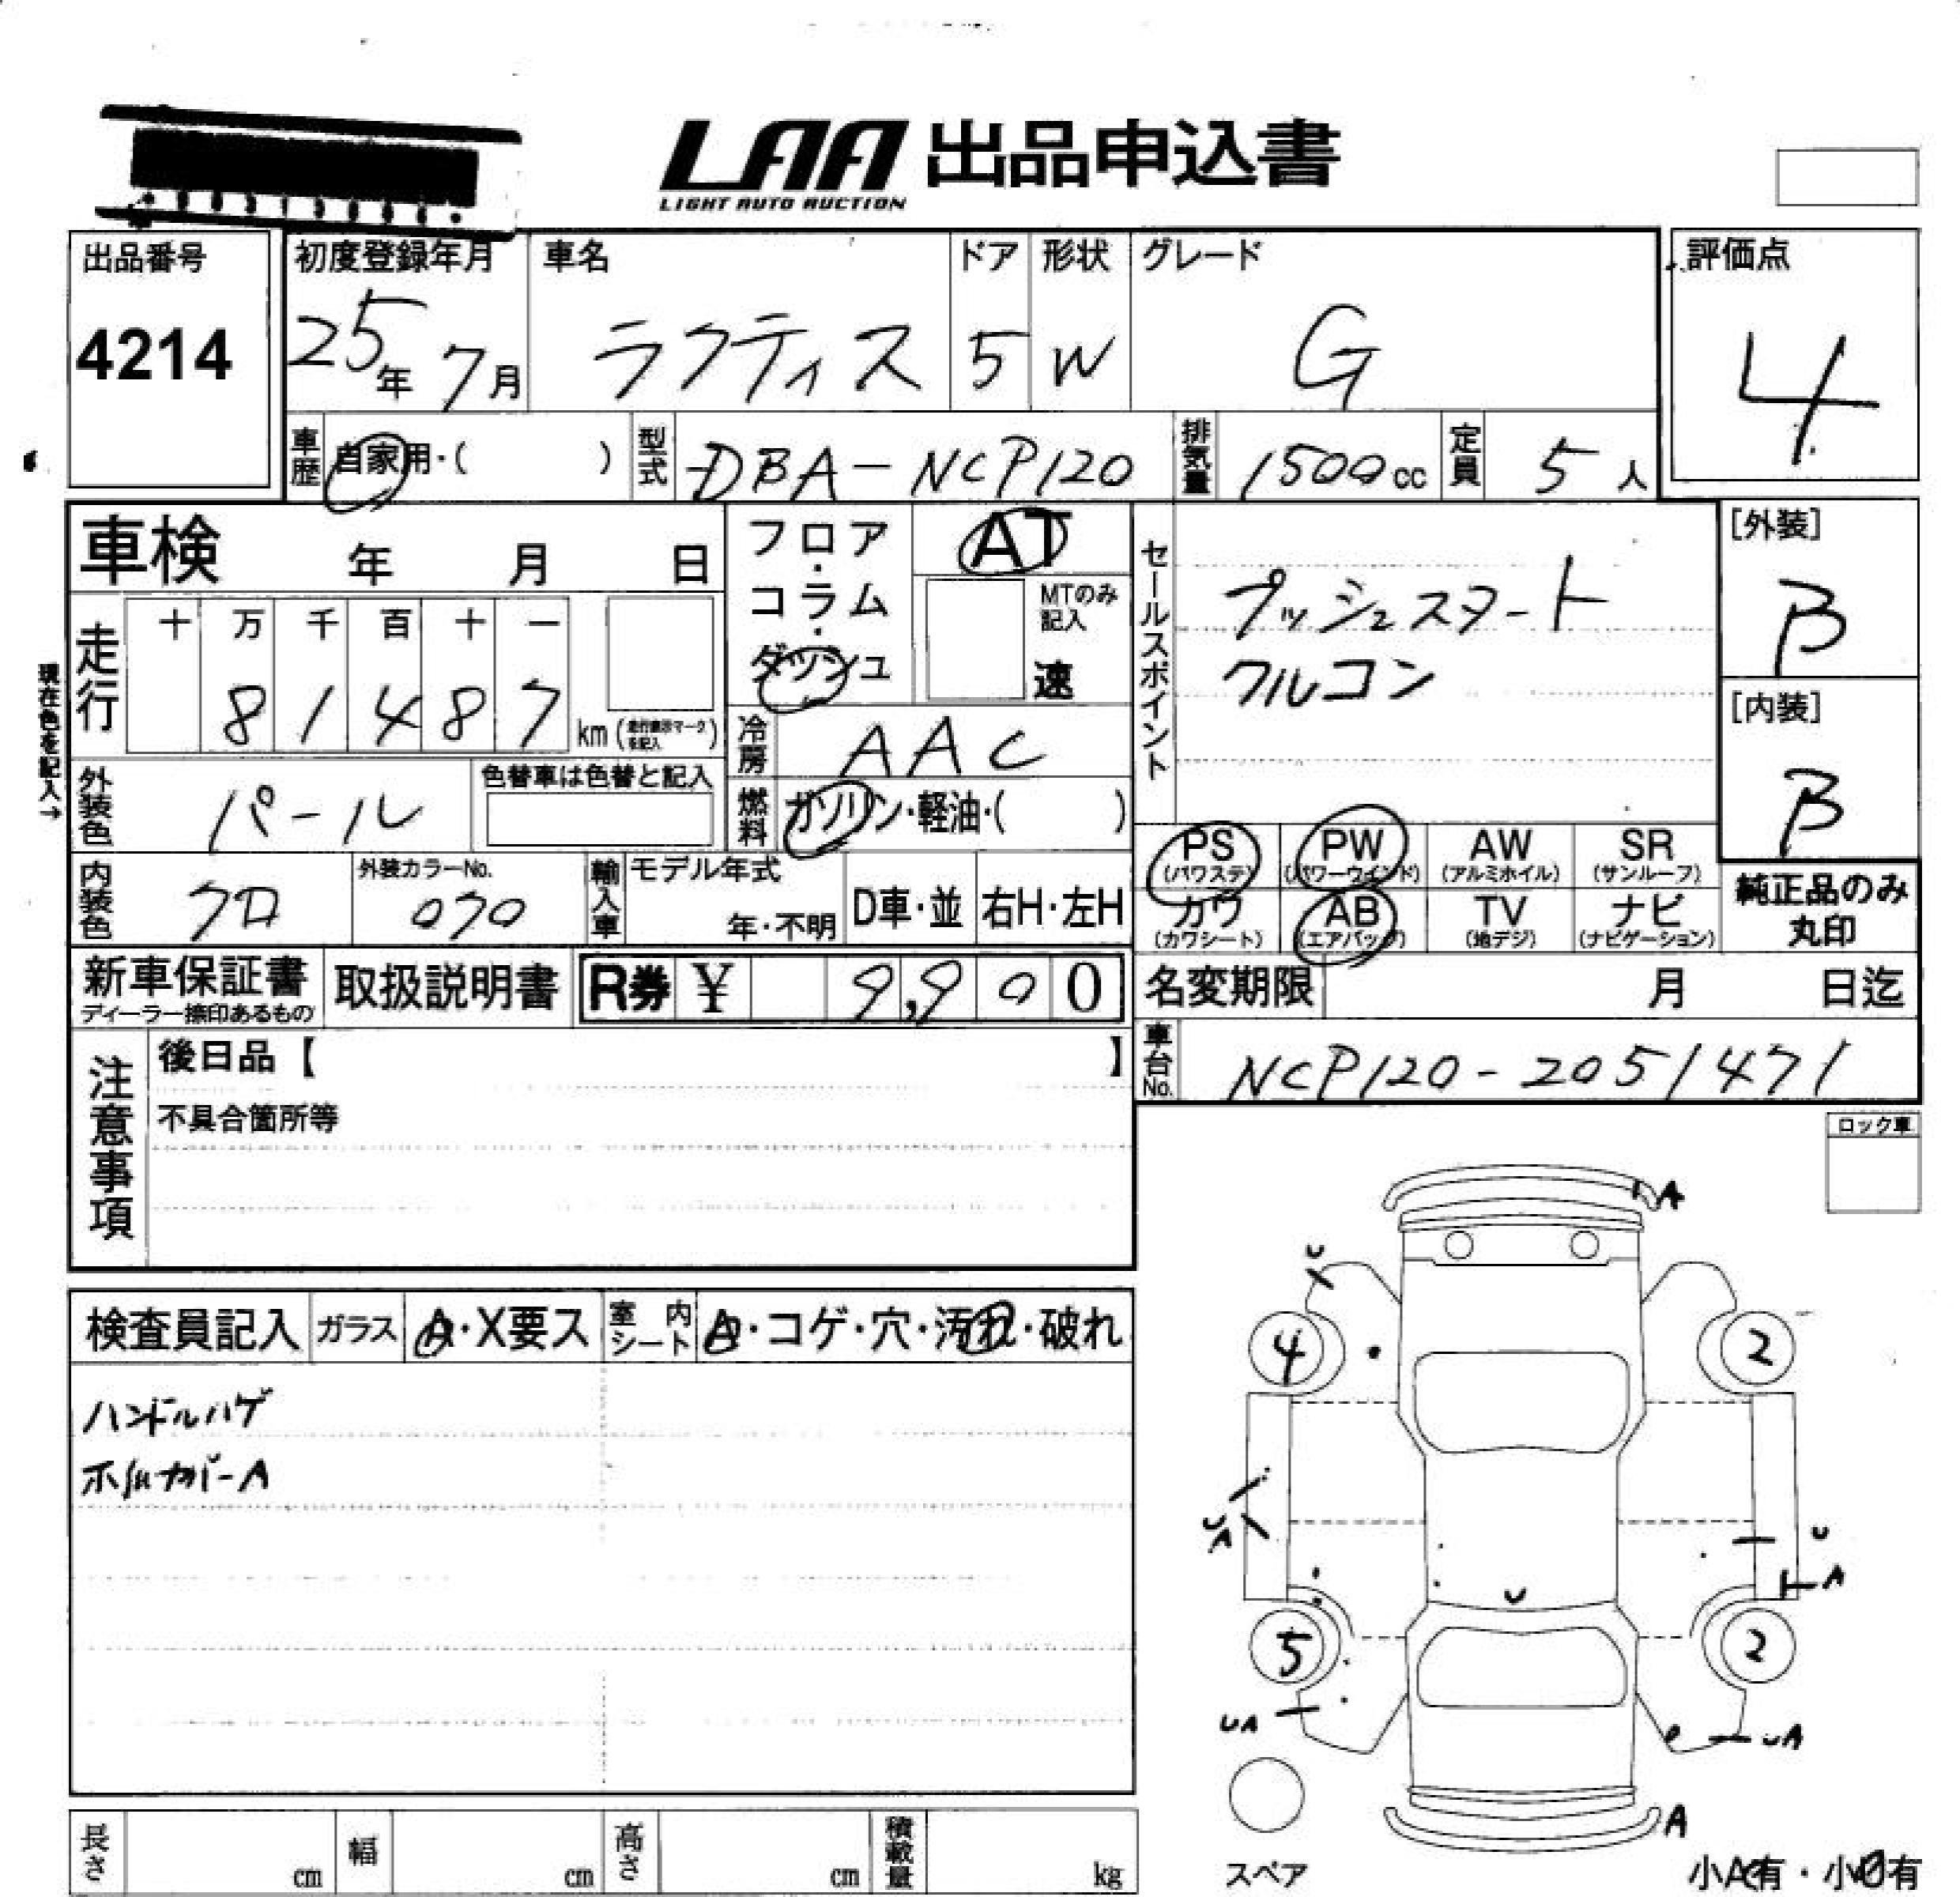 LAA 出品申込書
LIGHT AUTO AUCTION
出品番号
4214
初度登録年月
25年 7月
車名
ラクティス
ドア
5
形状
W
グレード
G
評価点
4
車歴 自家用・( )
型式 DBA-NCP120
排気量 1500cc
定員 5人
車検 年 月 日
フロア・コラム・ダッシュ
AT
MTのみ記入
速
セールスポイント
プッシュスタート
クルコン
[外装]
B
[内装]
B
現在色を記入→
走行
十 万 千 百 十 一
8 1 4 8 7 km (走行表示マークを記入)
冷房 AAC
外装色 パール
色替車は色替と記入
燃料 ガソリン・軽油・( )
内装色 クロ
外装カラーNo.
070
輸入車
モデル年式
年・不明
D車・並
右H・左H
PS (パワステ)
PW (パワーウインド)
AW (アルミホイル)
SR (サンルーフ)
カワ (カワシート)
AB (エアバッグ)
TV (地デジ)
ナビ (ナビゲーション)
純正品のみ
丸印
新車保証書
ディーラー捺印あるもの
取扱説明書
R券 ¥ 9,900
名変期限 月 日迄
車台No. NCP120-2051471
注意事項
後日品【 】
不具合箇所等
ロック車
検査員記入
ガラス A・X要ス
室内シート A・コゲ・穴・汚れ・破れ
ハンドルハゲ
ホイルカバーA
A
U
4
2
UA
U
A
U
5
2
UA
UA
A
スペア
小A有・小U有
長さ cm
幅 cm
高さ cm
積載量 kg